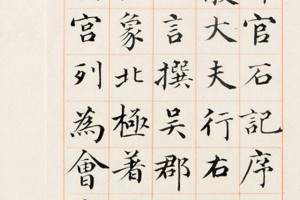 官石記序
大夫行右
言撰吳郡
象北極著
宮列為會